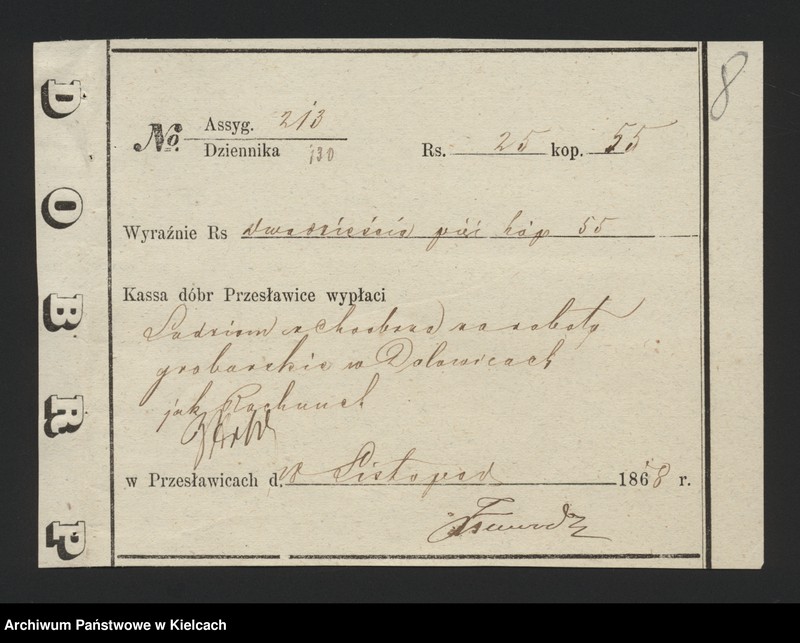 DOBR P
8
No. Assyg. 213
Dziennika 130
Rs. 25 kop. 55
Wyraźnie Rs dwadzieścia pięć kóp 55
Kassa dóbr Przesławice wypłaci
Ludziom z za roboty
grobarskie w
jak Rachunek
w Przesławicach d. Listopad 1868 r.
Archiwum Państwowe w Kielcach